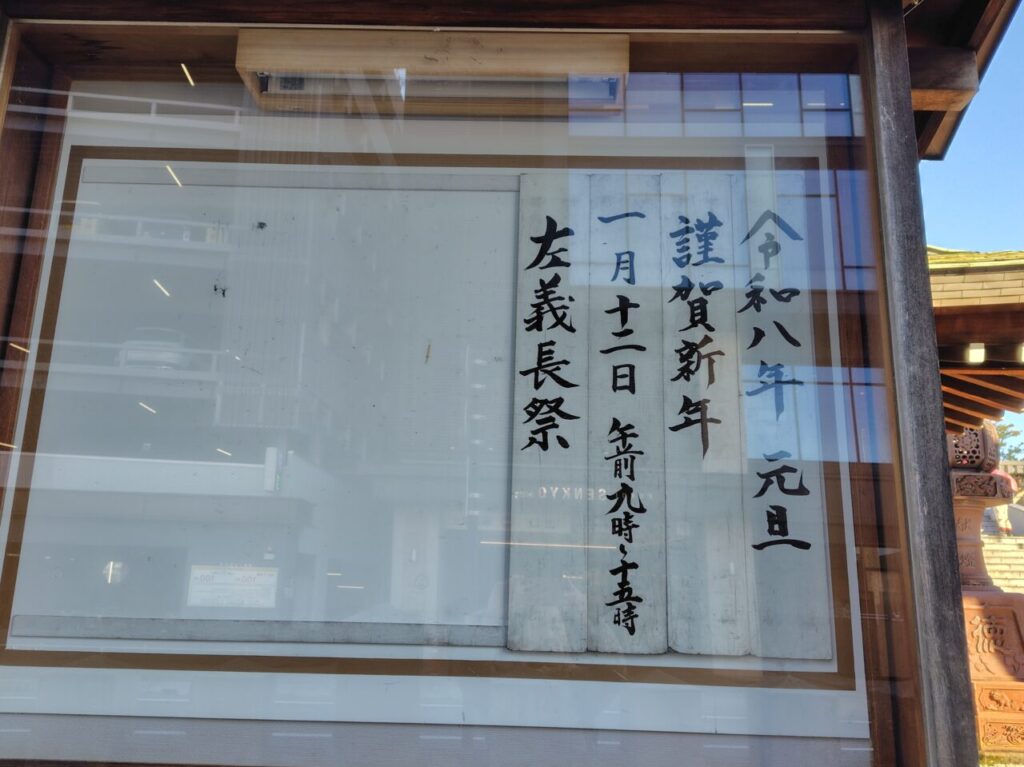 令和八年 元旦
謹賀新年
一月十二日 午前九時〜十五時
左義長祭
SENKYO
徳